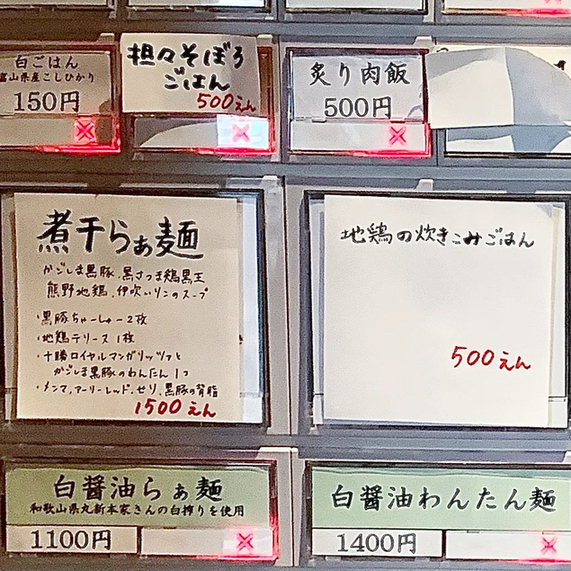 白ごはん
富山県産こしひかり
150円
担々そぼろ
ごはん
500えん
炙り肉飯
500円
煮干らぁ麺
かごしま黒豚、黒さつま鶏黒王
熊野地鶏、伊吹いりこのスープ
・黒豚ちゃーしゅー2枚
・地鶏テリーヌ1枚
・十勝ロイヤルマンガリッツァと
かごしま黒豚のわんたん1コ
・メンマ、アーリーレッド、セリ、黒豚の背脂
1500えん
地鶏の炊きこみごはん
500えん
白醤油らぁ麺
和歌山県丸新本家さんの白搾りを使用
1100円
白醤油わんたん麺
1400円